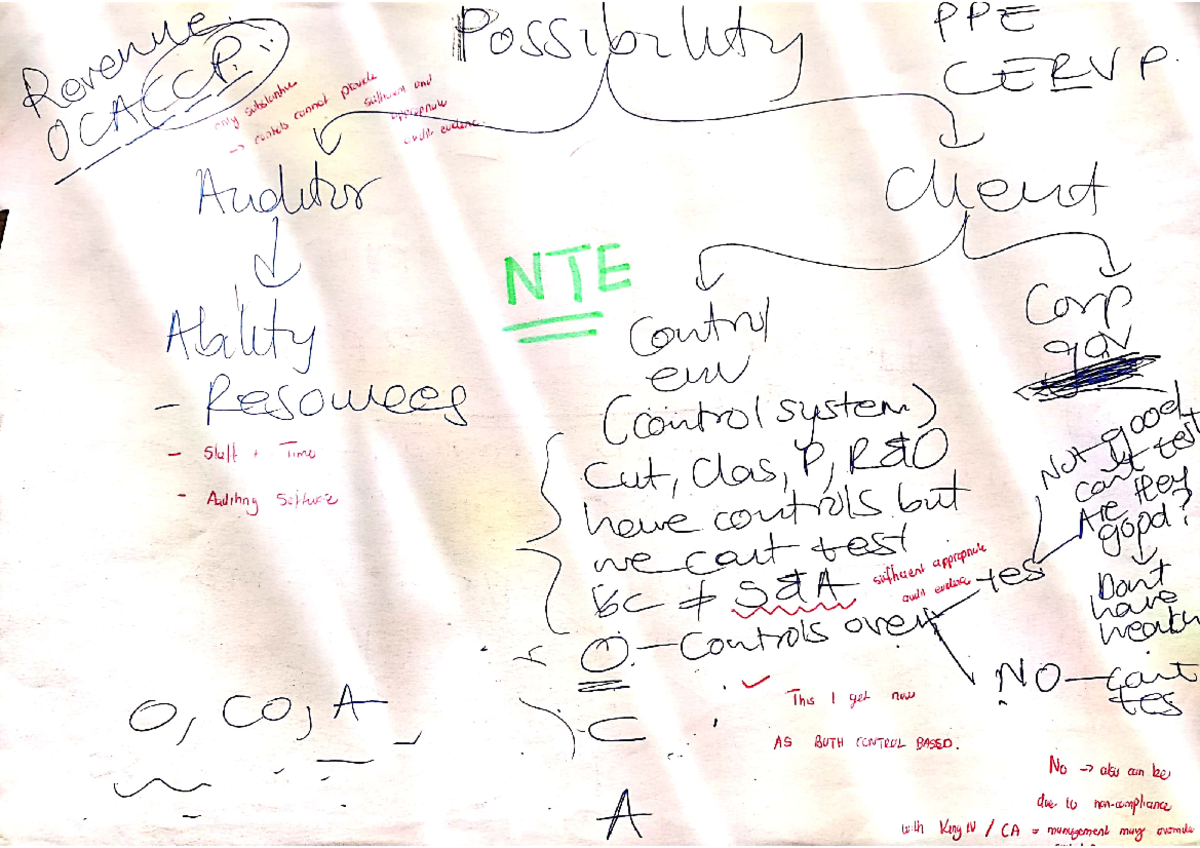 Revenue
OCACCP.
Possibility
PPE
CERVP.
only substantive
→ controls cannot provide
sufficient and
appropriate
audit evidence.
Auditor
Client
NTE
Ability
- Resources
- Staff + Time
- Auditing Software
Control
env
(control system)
Corp
gov
Cut, Clas, P, R&O
have controls but
we cant test
bc ≠ S&A
sufficient appropriate
audit evidence
O - Controls over
yes
Not good
cant test
Are they
good?
Dont
have
NO - cant
tes
C
A
O, CO, A
This I get now
AS BOTH CONTROL BASED.
No → also can be
due to non-compliance
with King IV / CA = management override